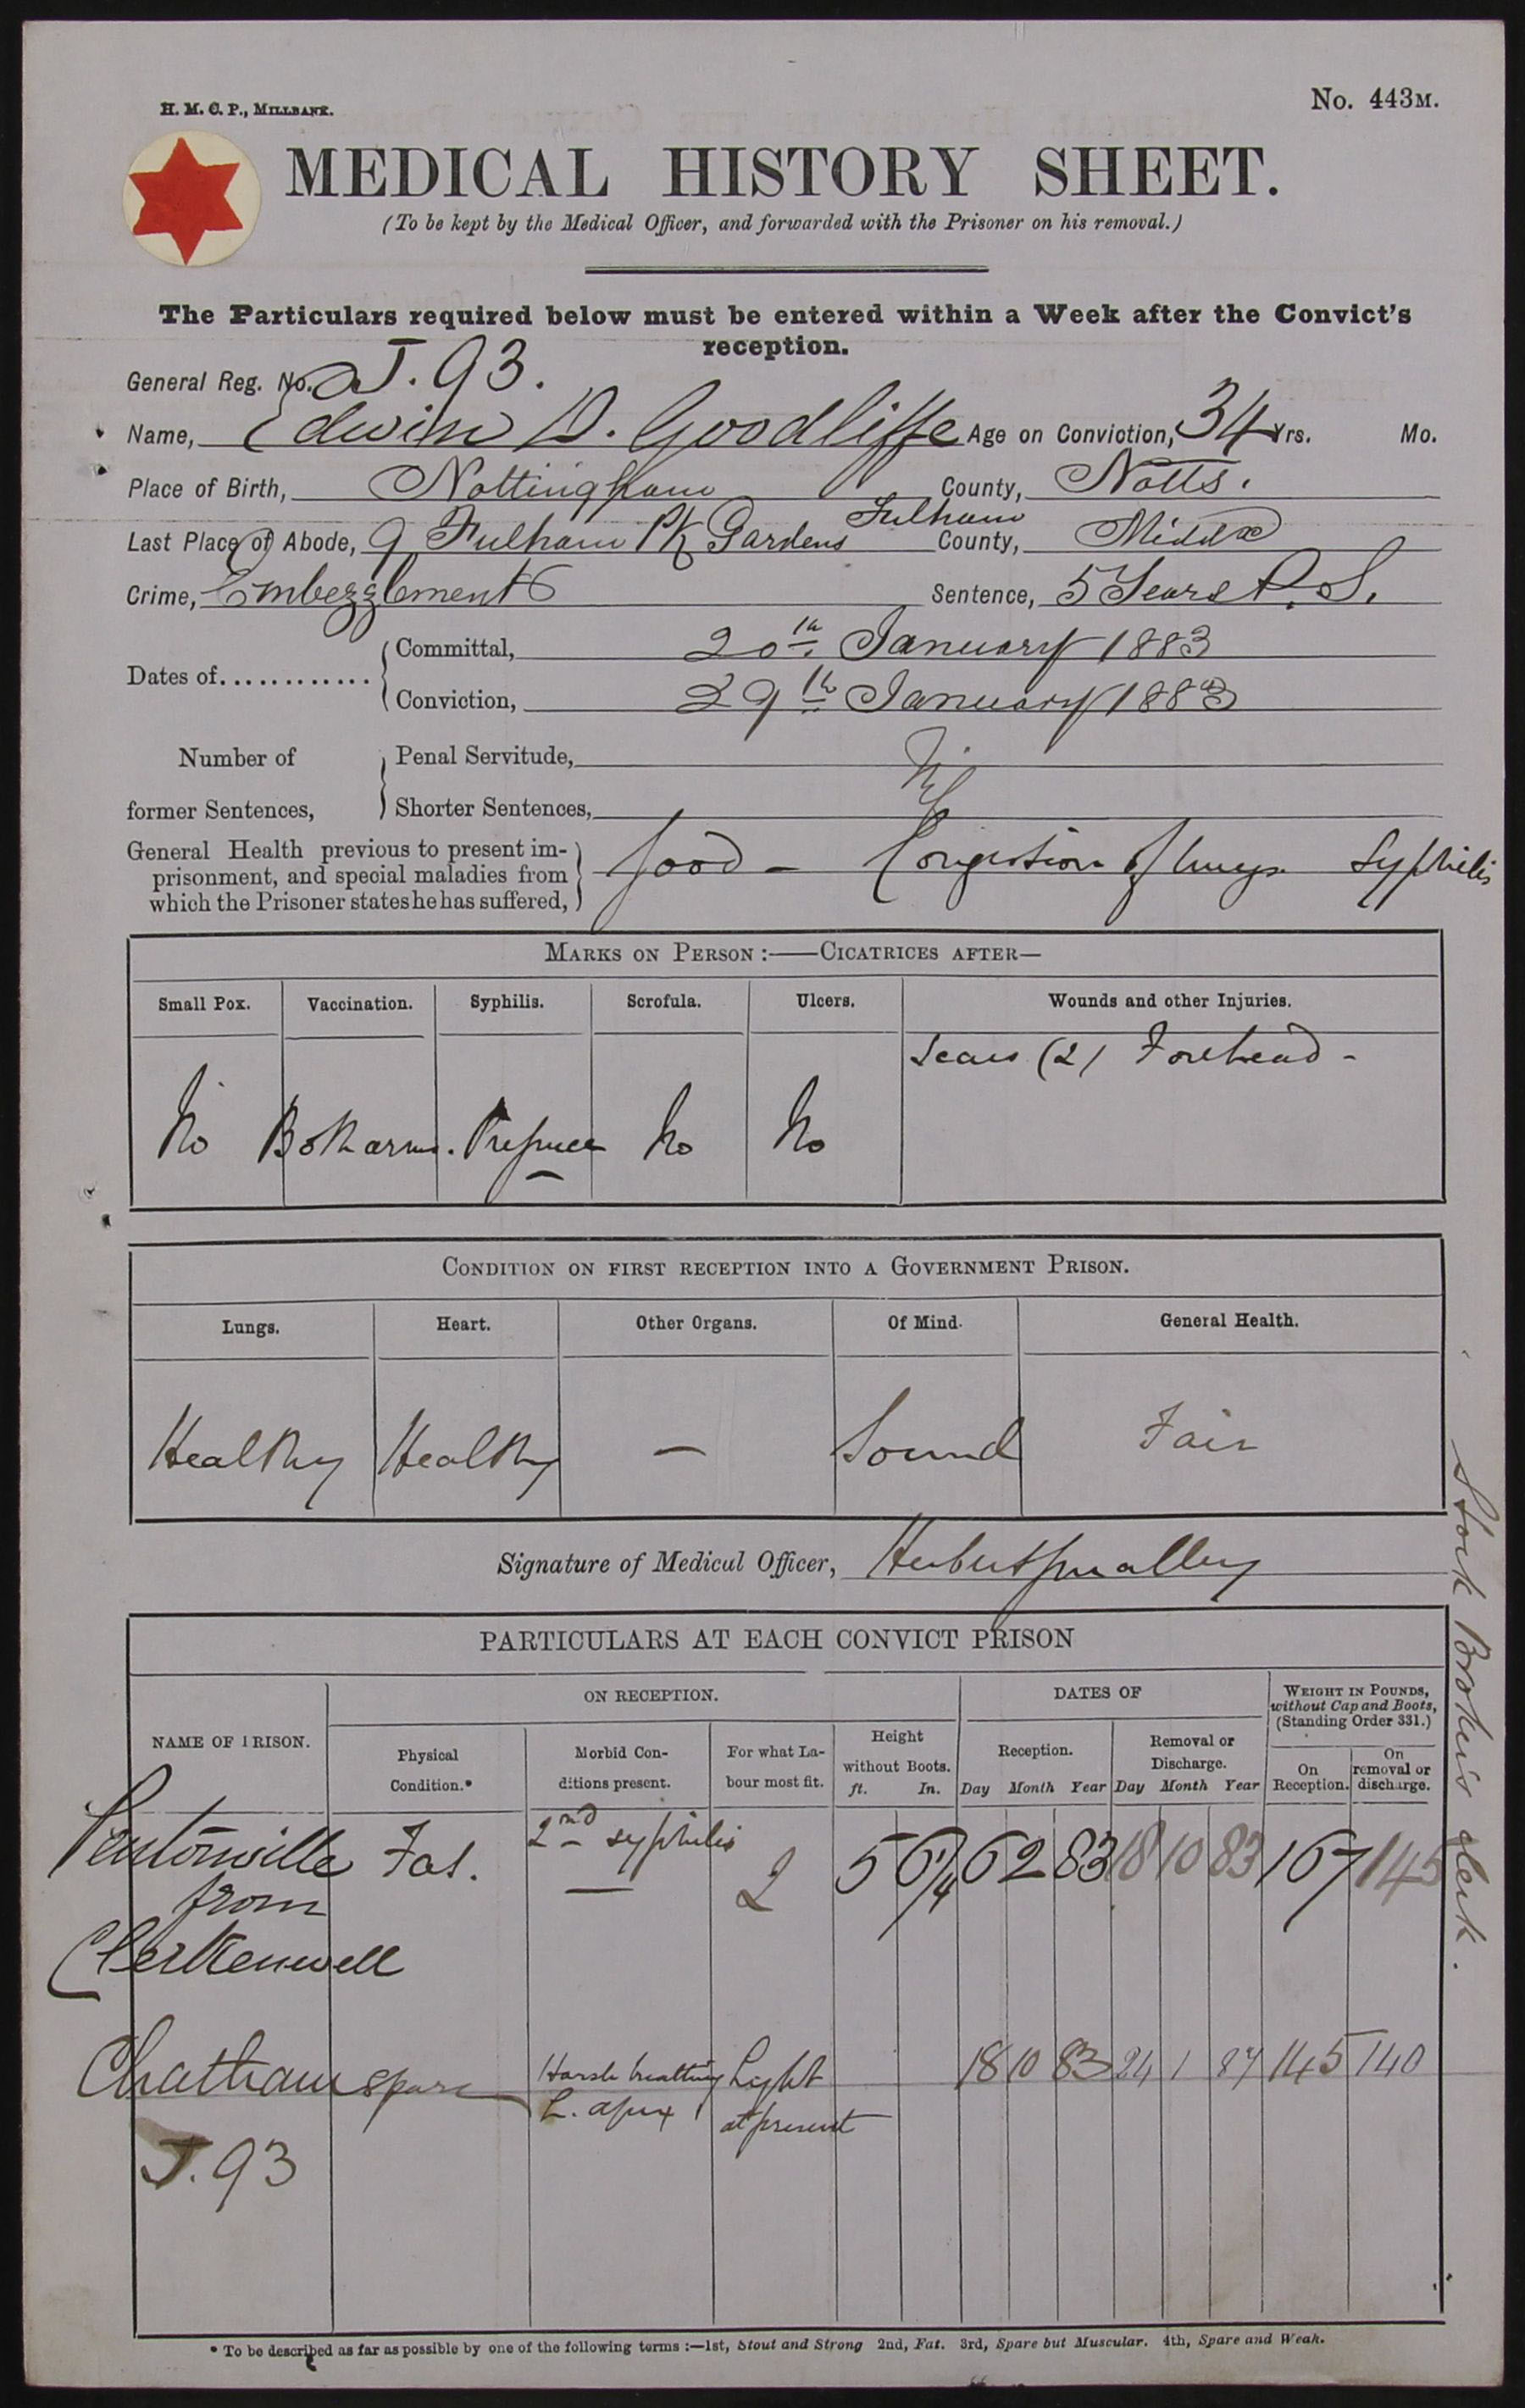 H. M. C. P., MILLBANK.
No. 443M.
MEDICAL HISTORY SHEET.
(To be kept by the Medical Officer, and forwarded with the Prisoner on his removal.)
The Particulars required below must be entered within a Week after the Convict's
reception.
General Reg. No. J. 93.
Name, Edwin D. Goodliffe Age on Conviction, 34 Yrs. Mo.
Place of Birth, Nottingham County, Notts.
Last Place of Abode, 9 Fulham Pk Gardens Fulham County, Middx
Crime, Embezzlement Sentence, 5 Years P. S.
Dates of............ Committal, 20th January 1883
Conviction, 29th January 1883
Number of Penal Servitude,
Nil
former Sentences, Shorter Sentences,
General Health previous to present im-
prisonment, and special maladies from
which the Prisoner states he has suffered,
Good - Congestion of lungs. Syphilis
MARKS ON PERSON:—CICATRICES AFTER—
Small Pox. Vaccination. Syphilis. Scrofula. Ulcers. Wounds and other Injuries.
Scars (2) Forehead -
No Both arms. Prepuce No No
CONDITION ON FIRST RECEPTION INTO A GOVERNMENT PRISON.
Lungs. Heart. Other Organs. Of Mind. General Health.
Healthy Healthy — Sound Fair
Signature of Medical Officer, Herbert Smalley
PARTICULARS AT EACH CONVICT PRISON
NAME OF PRISON. ON RECEPTION. DATES OF WEIGHT IN POUNDS,
without Cap and Boots,
(Standing Order 331.)
Physical
Condition.*
Morbid Con-
ditions present.
For what La-
bour most fit.
Height
without Boots.
ft. In.
Reception.
Day Month Year
Removal or
Discharge.
Day Month Year
On
Reception.
On
removal or
discharge.
Pentonville Fat. 2nd syphilis 2 5 6 1/4 6 2 83 18 10 83 167 145
from
Clerkenwell
Chatham spare Harsh breathing Light 18 10 83 24 1 87 145 140
L. apex at present
J. 93
* To be described as far as possible by one of the following terms:—1st, Stout and Strong 2nd, Fat. 3rd, Spare but Muscular. 4th, Spare and Weak.
Stock Broker's clerk.